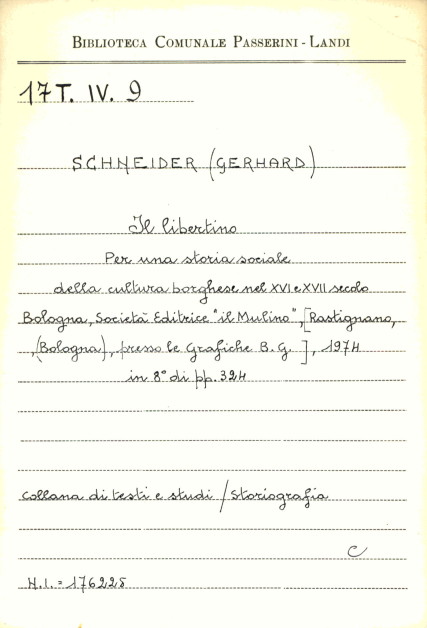 BIBLIOTECA COMUNALE PASSERINI - LANDI
17 T. IV. 9
SCHNEIDER (GERHARD)
Il libertino
Per una storia sociale
della cultura borghese nel XVI e XVII secolo
Bologna, Società Editrice "il Mulino", [Rastignano,
, (Bologna), presso le Grafiche B. G.], 1974
in 8° di pp. 324
Collana di testi e studi / Storiografia
C
N.I. = 176225